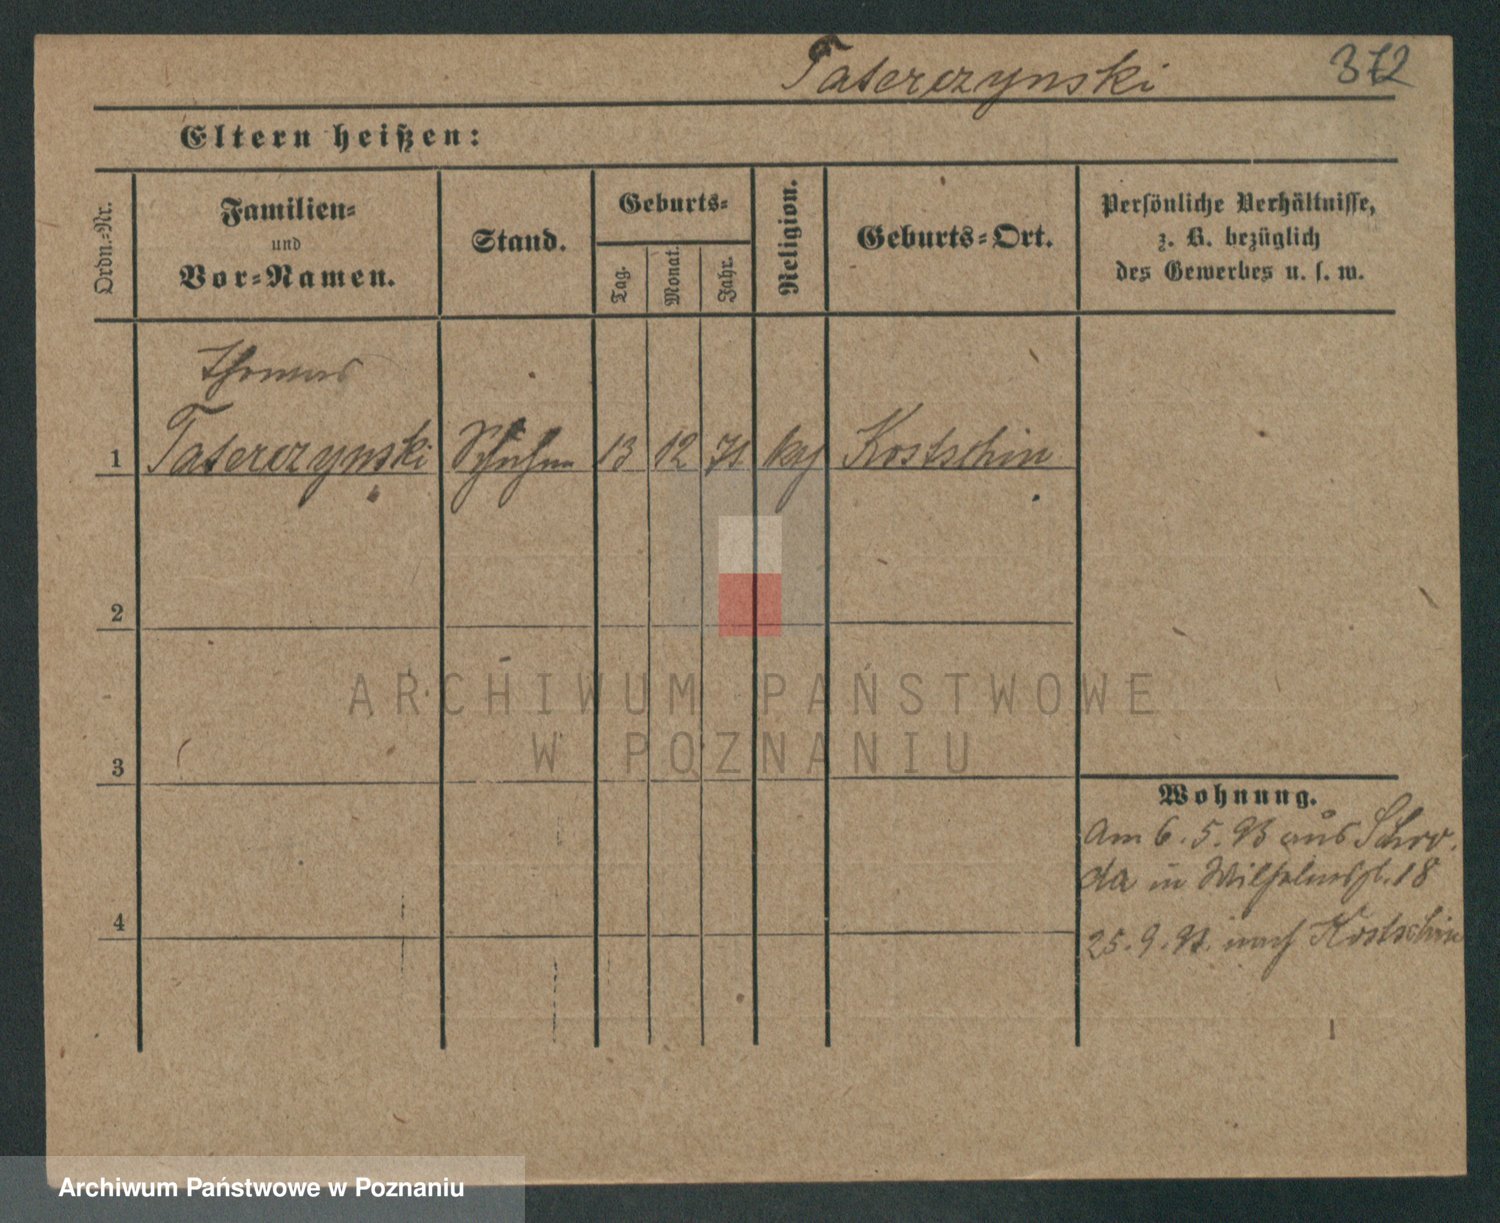 Taterczynski 372
Eltern heißen:
Ordn.=Nr.
Familien=
und
Vor=Namen.
Stand.
Geburts=
Tag.
Monat.
Jahr.
Religion.
Geburts=Ort.
Persönliche Verhältnisse,
z. B. bezüglich
des Gewerbes u. s. w.
Thomas
1 Taterczynski 13 12 71 Kostschin
2
3
4
Wohnung.
Am 6.5.93 aus Schro-
da in Wilhelmspl. 18
25.9.93. nach Kostschin
ARCHIWUM PAŃSTWOWE
W POZNANIU
Archiwum Państwowe w Poznaniu